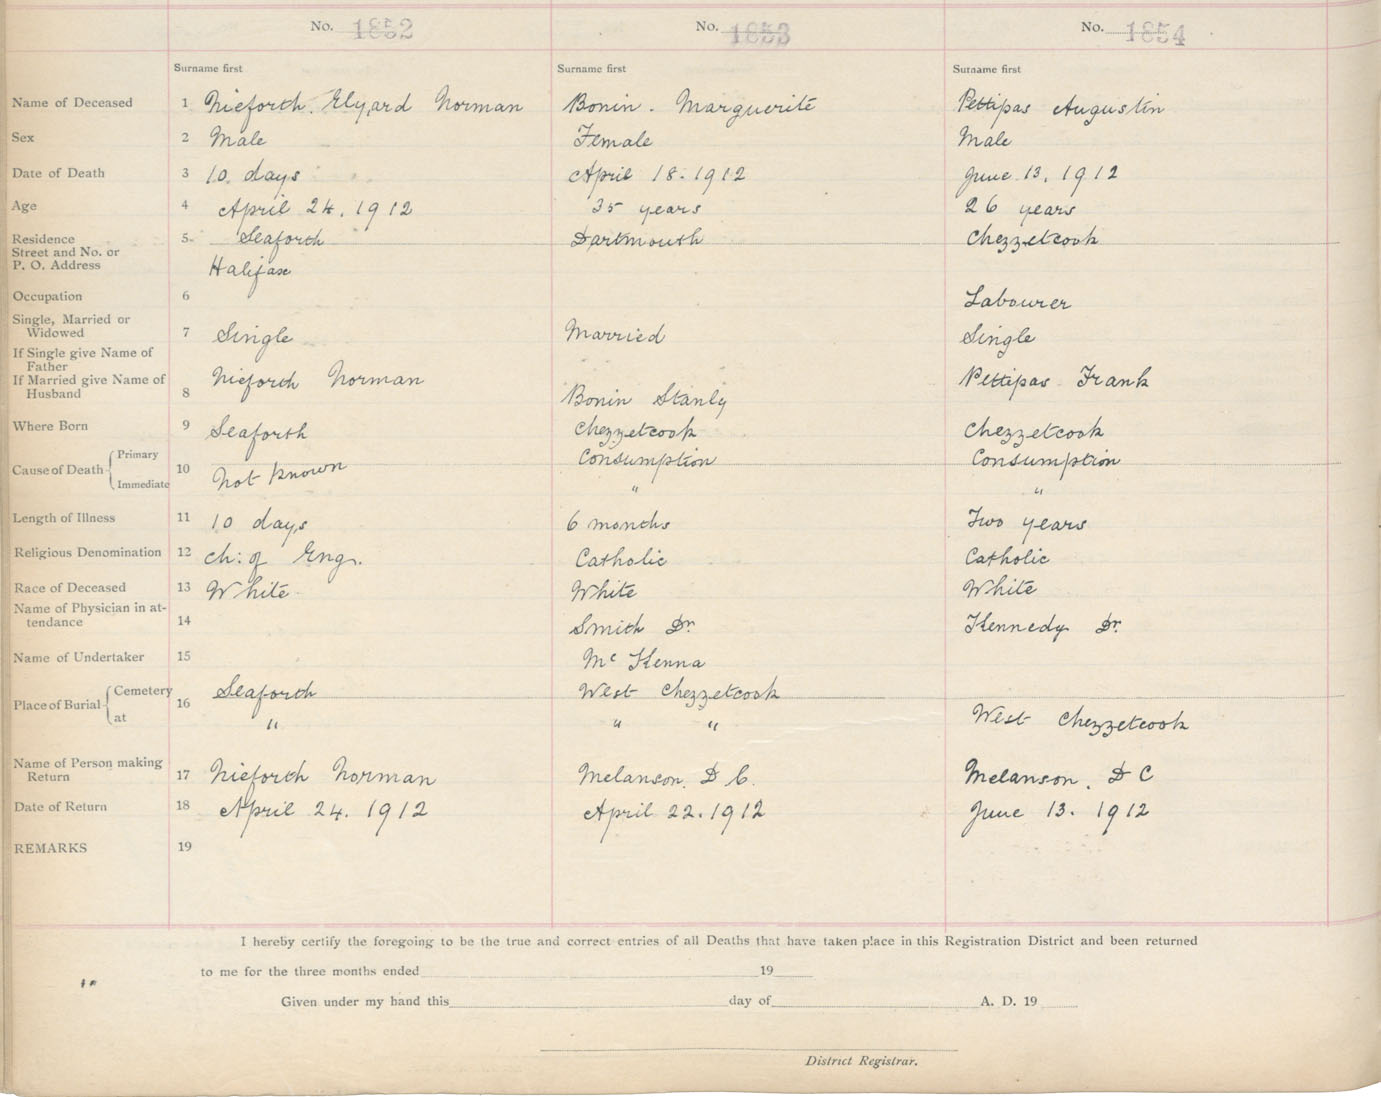 No. 1852 No. 1853 No. 1854
Surname first Surname first Surname first
Name of Deceased 1 Nieforth. Elyard Norman Bonin. Marguerite Pettipas Augustin
Sex 2 Male Female Male
Date of Death 3 10 days April 18-1912 June 13, 1912
Age 4 April 24. 1912 35 years 26 years
Residence 5 Seaforth Dartmouth Chezzetcook
Street and No. or
P. O. Address Halifax
Occupation 6 Labourer
Single, Married or
Widowed 7 Single Married Single
If Single give Name of
Father
If Married give Name of Nieforth Norman Pettipas Frank
Husband 8 Bonin Stanly
Where Born 9 Seaforth Chezzetcook Chezzetcook
Cause of Death Primary 10 Not known Consumption Consumption
Immediate " "
Length of Illness 11 10 days 6 months Two years
Religious Denomination 12 Ch: of Eng. Catholic Catholic
Race of Deceased 13 White White White
Name of Physician in at-
tendance 14 Smith Dr. Kennedy Dr.
Name of Undertaker 15 Mc Kenna
Place of Burial Cemetery 16 Seaforth West Chezzetcook
at " " " West Chezzetcook
Name of Person making
Return 17 Nieforth Norman Melanson. D C. Melanson. D C
Date of Return 18 April 24. 1912 April 22. 1912 June 13. 1912
REMARKS 19
I hereby certify the foregoing to be the true and correct entries of all Deaths that have taken place in this Registration District and been returned
to me for the three months ended 19
Given under my hand this day of A. D. 19
District Registrar.